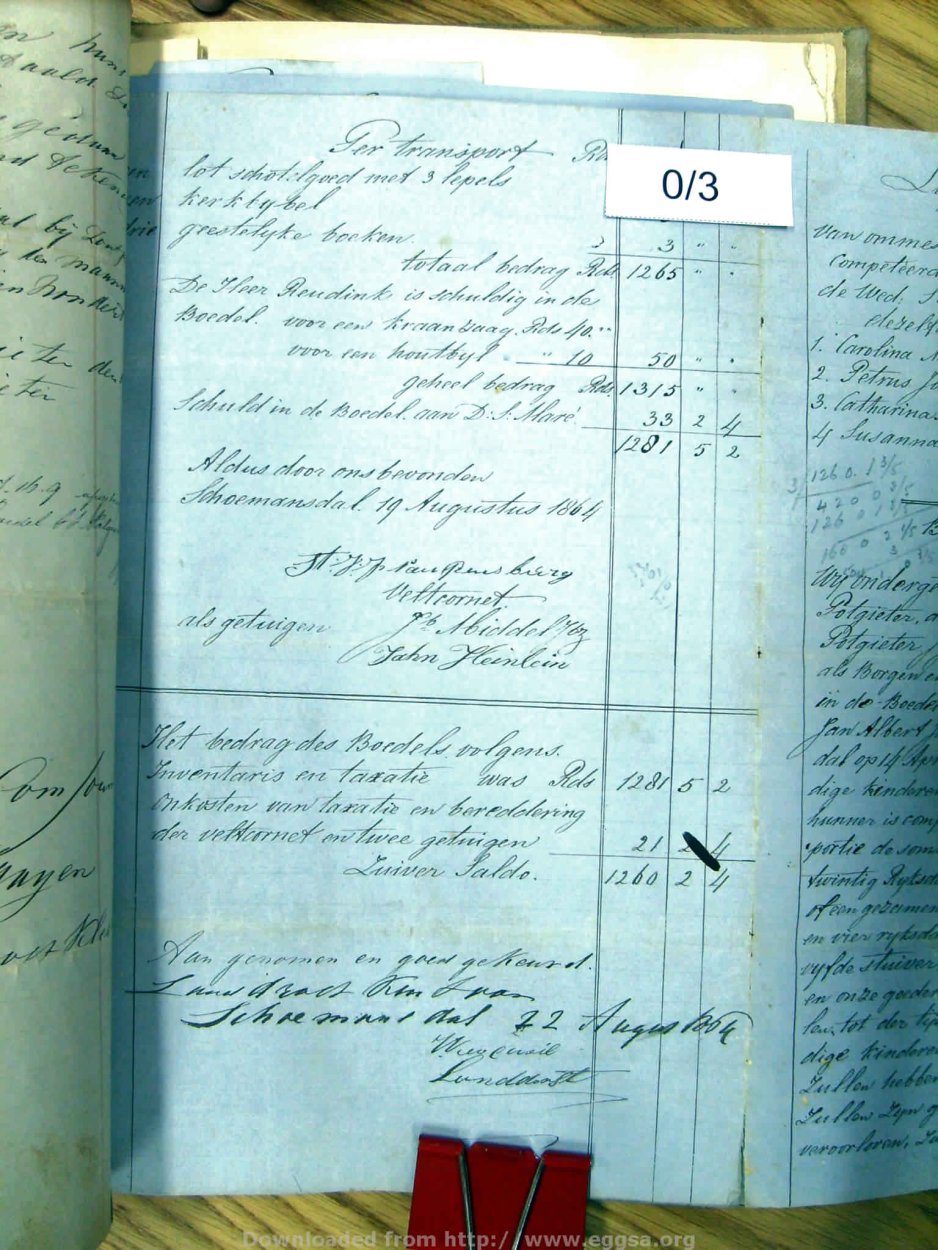 Per transport Rds
0/3
lot schotelgoed met 3 lepels
kerkbybel
geestelyke boeken. 3 " "
totaal bedrag Rds 1265 " "
De Heer Reudink is schuldig in de
Boedel. voor een kraanzaag. Rds 40. "
voor een houtbyl " 10 50 " "
geheel bedrag Rds 1315 " "
Schuld in de Boedel aan D: S. Maré 33 2 4
1281 5 2
Aldus door ons bevonden
Schoemansdal. 19 Augustus 1864
St: J: J van Rensburg
Veltcornet
als getuigen Middel
Jahn Heinlein
Het bedrag des Boedels volgens.
Inventaris en taxatie was Rds 1281 5 2
Onkosten van taxatie en bereddering
der veltcornet en twee getuigen 21 2 4
Zuiver Saldo. 1260 2 4
Aan genomen en goed gekeurd.
Landdrost Kantoor
Schoemansdal 22 Augus 1864
Landdrost
van omme
Competeer
de Wed:
dezel
1. Carolina
2. Petrus
3. Catharina
4 Susanna
Wy onderge
Potgieter,
Potgieter
als Borgen
in de Boede
Jan Albert
dal op 14 Apr
dige kinderen
hunner is com
portie de som
twintig Ryksd
of een gezamen
en vier ryksda
vyfde stuiver
en onze goeder
len, tot der ty
dige kindere
Zullen hebben
Zullen zyn g
veroorloven,
Downloaded from http://www.eggsa.org